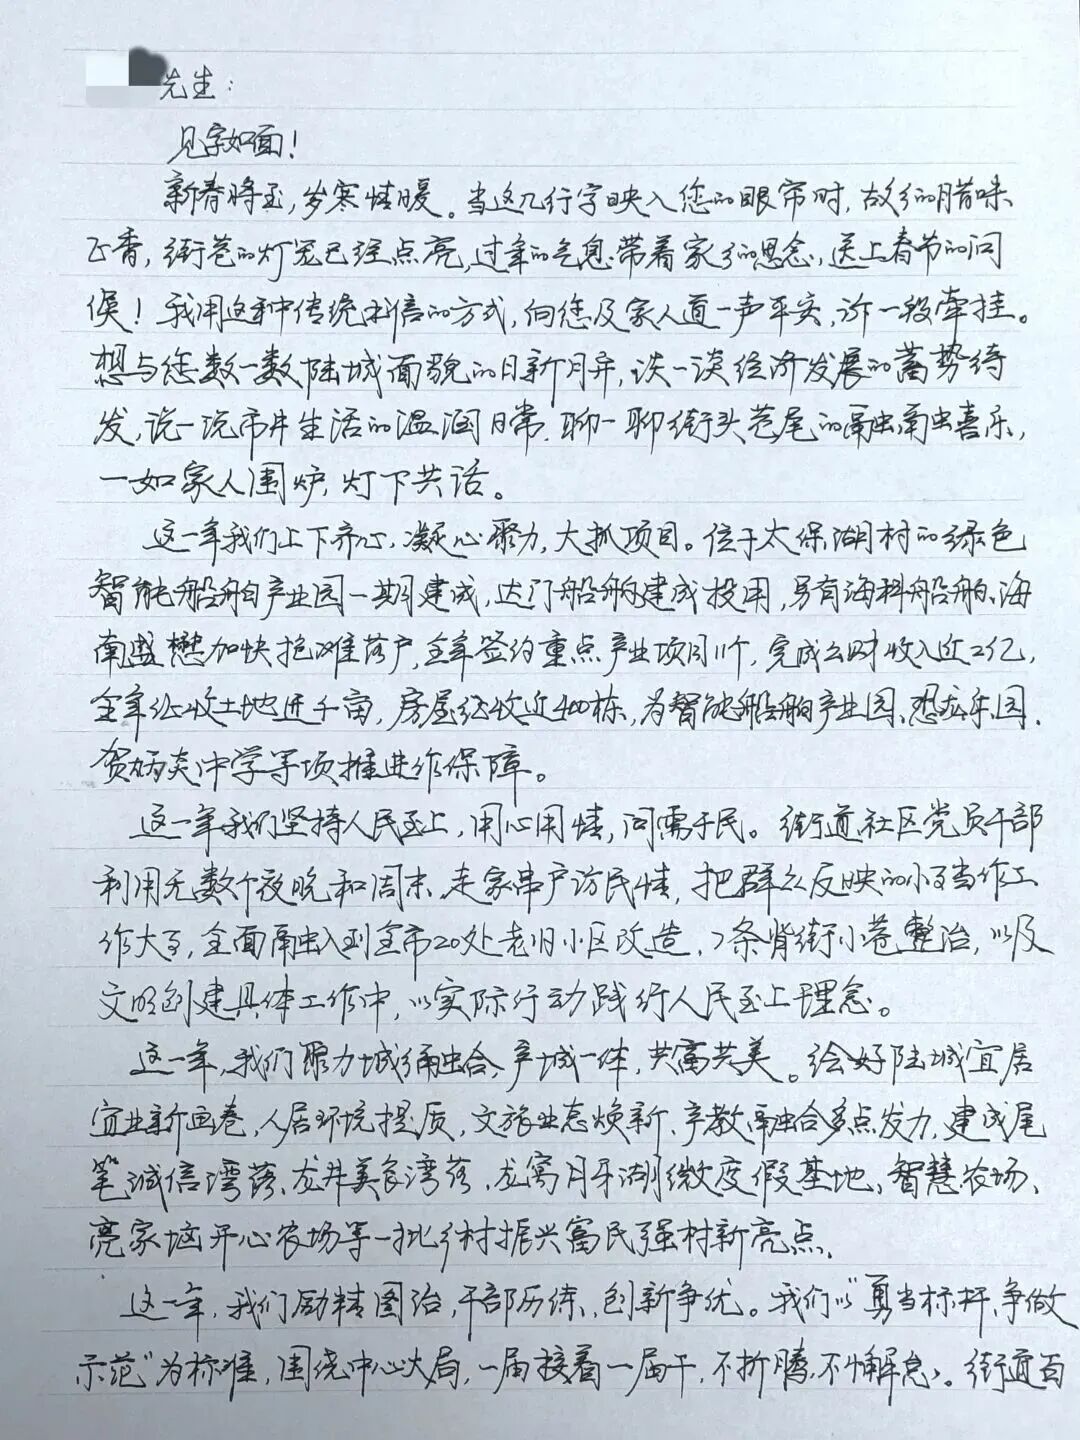 先生：
见字如面！
新春将至，岁寒情暖。当这几行字映入您的眼帘时，故乡的腊味
飞香，街巷的灯笼已经点亮，过年的气息带着家乡的思念，送上春节的问
候！我用这种传统书信的方式，向您及家人道一声平安，诉一段牵挂。
想与您数一数陆城面貌的日新月异，谈一谈经济发展的蓄势待
发，说一说市井生活的温润日常，聊一聊街头巷尾的融融喜乐，
一如家人围炉，灯下共话。
这一年我们上下齐心，凝心聚力，大抓项目。位于太保湖村的绿色
智能船舶产业园一期建成，达门船舶建成投用，另有海科船舶、海
南盛懋加快抢滩落户，全年签约重点产业项目11个，完成公财收入近2亿，
全年征收土地近千亩，房屋征收近400栋，为智能船舶产业园、恐龙乐园、
贺炳炎中学等项推进作保障。
这一年我们坚持人民至上，用心用情，问需于民。街道社区党员干部
利用无数个夜晚和周末，走家串户访民情，把群众反映的小事当作工
作大事，全面融入到全市20处老旧小区改造，7条背街小巷整治，以及
文明创建具体工作中，以实际行动践行人民至上理念。
这一年，我们聚力城乡融合，产城一体，共富共美。绘好陆城宜居
宜业新画卷，人居环境提质，文旅业态焕新，产教融合多点发力，建成尾
笔诚信湾落、龙井美食湾落、龙窝月牙湖微度假基地、智慧农场、
亮家垴开心农场等一批乡村振兴富民强村新亮点。
这一年，我们励精图治，干部历练，创新争优。我们以“勇当标杆、争做
示范”为标准，围绕中心大局，一届接着一届干，不折腾，不懈怠。街道百